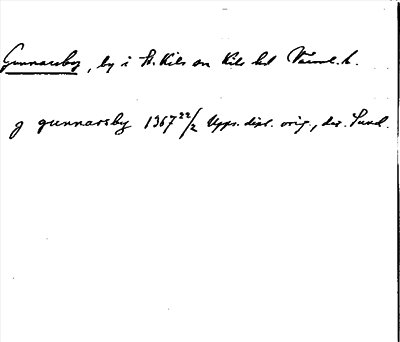 Gunnarsby, by i St. Kils sn Kils hd Värml. l.
g gunnarsby 1367 22/2 Upps. dipl. orig.,